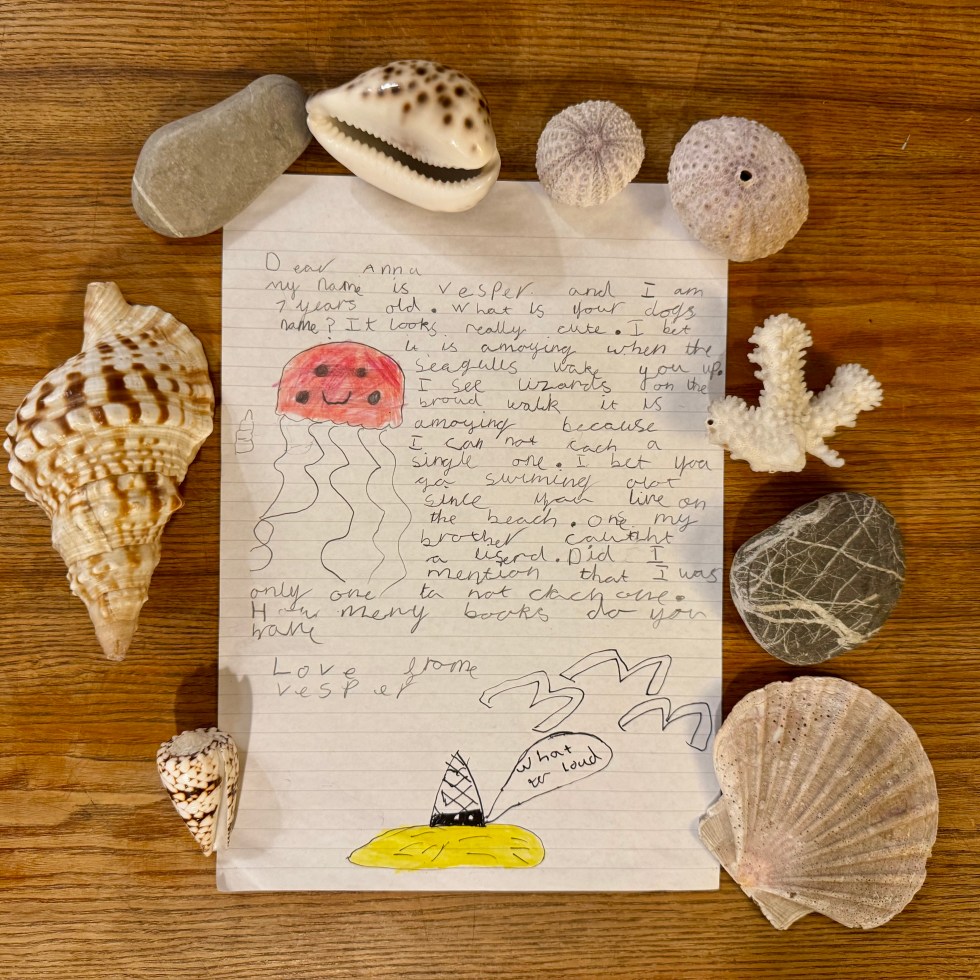 Dear Anna
my name is vesper and I am
7 years old. What is your dogs
name? It looks really cute. I bet
it is amoying when the
seagulls wake you up.
I see lizards on the
broud walk it is
amoying because
I can not cach a
single one. I bet you
go swiming alot
since you live on
the beach. one my
brother cautht
a liserd. Did I
mention that I was
only one to not cachone.
How meny books do you
have
Love frome
vesper
what
to loud